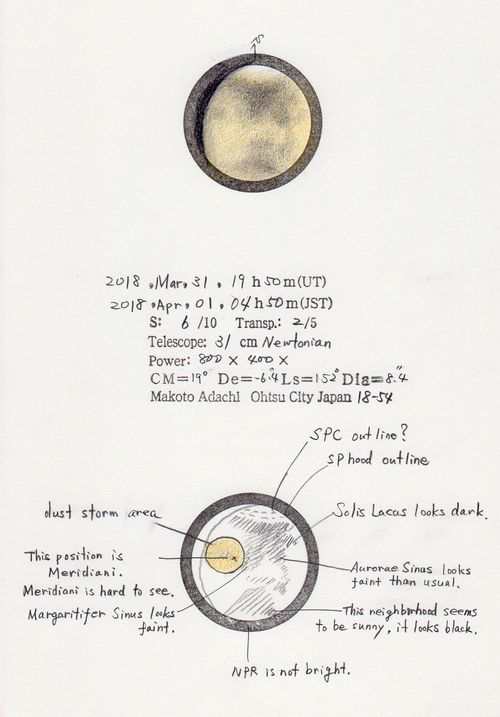 S
2018, Mar, 31, 19h50m(UT)
2018, Apr, 01, 04h50m(JST)
S: 6 /10 Transp.: 2/5
Telescope: 31 cm Newtonian
Power: 800 × 400 ×
CM=19° De=-6.4° Ls=152° Dia=8.4"
Makoto Adachi Ohtsu City Japan 18-54
SPC outline?
SP hood outline
dust storm area
Solis Lacus looks dark.
This position is
Meridiani.
Meridiani is hard to see.
Aurorae Sinus looks
faint than usual.
Margaritifer Sinus looks
faint.
This neighbirhood seems
to be sunny, it looks black.
NPR is not bright.